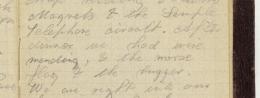 Magnets & the Simple
Telephone circuit. After
dinner we had wire
mending, & the morse
flag & the buzzer.
We are right into our